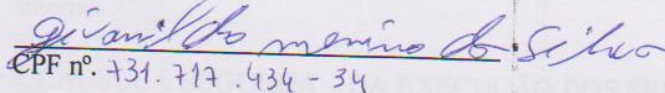 Givanildo menino da Silva
CPF nº. 731.717.434-34